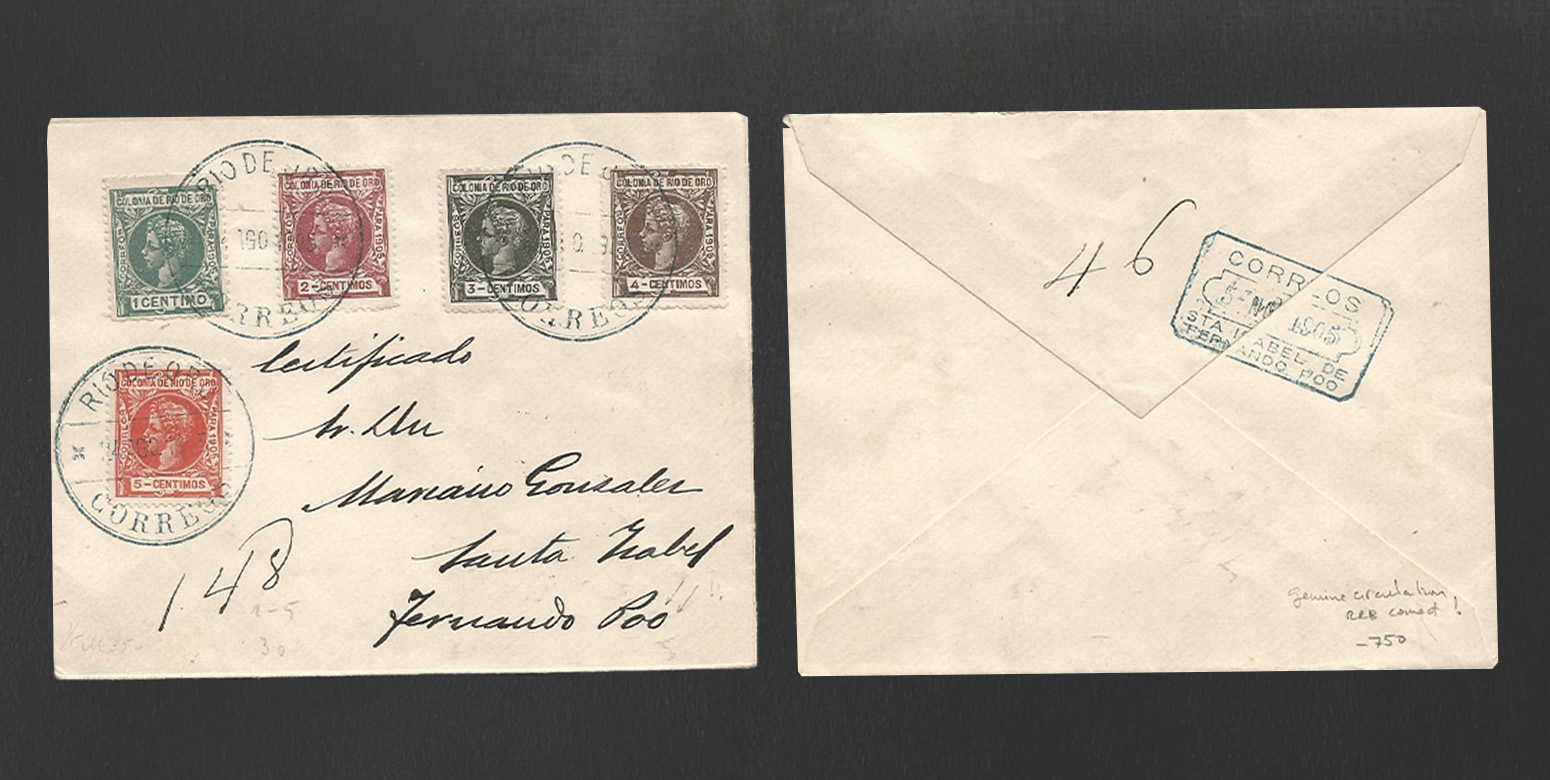 RIO DE
CORREOS
COLONIA DE RIO DE ORO
CORREOS
PARA 1905
1 CENTIMO
COLONIA DE RIO DE ORO
CORREOS
PARA 1905
2-CENTIMOS
COLONIA DE RIO DE ORO
CORREOS
PARA 1905
3-CENTIMOS
COLONIA DE RIO DE ORO
CORREOS
PARA 1905
4-CENTIMOS
CORREOS
RIO DE ORO
CORREOS
COLONIA DE RIO DE ORO
CORREOS
PARA 1905
5-CENTIMOS
Certificado
Sr. Don
Mariano Gonzalez
Santa Isabel
Fernando Poo
148
1-5
30
46
CORREOS
5- 1905
STA ISABEL DE
FERNANDO POO
genuine circulation!
RRR
-750